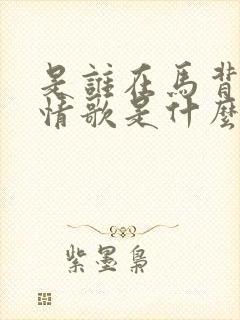 是誰在馬背
情歌是什麼
紫墨梟